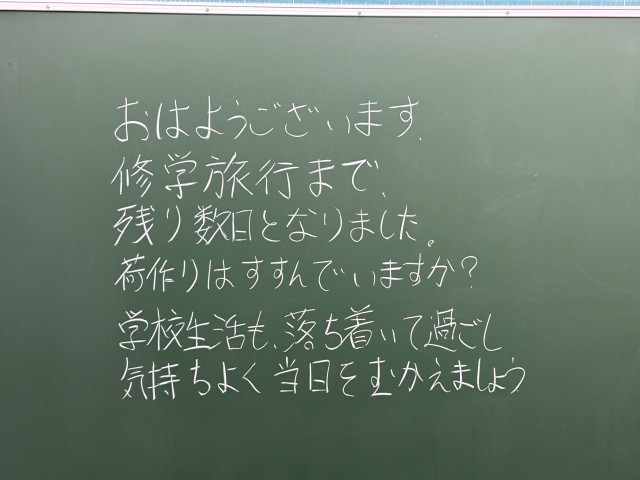 おはようございます.
修学旅行まで、
残り数日となりました。
荷作りはすすんでいますか?
学校生活も、落ち着いて過ごし
気持ちよく当日をむかえましょう